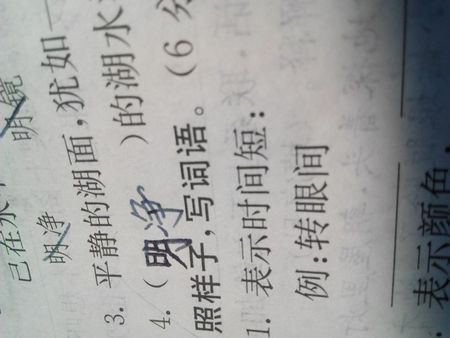 己在水
明净 明镜
3. 平静的湖面,犹如一
4. (明净)的湖水
照样子,写词语。(6 分
1. 表示时间短:
例:转眼间
. 表示颜色.